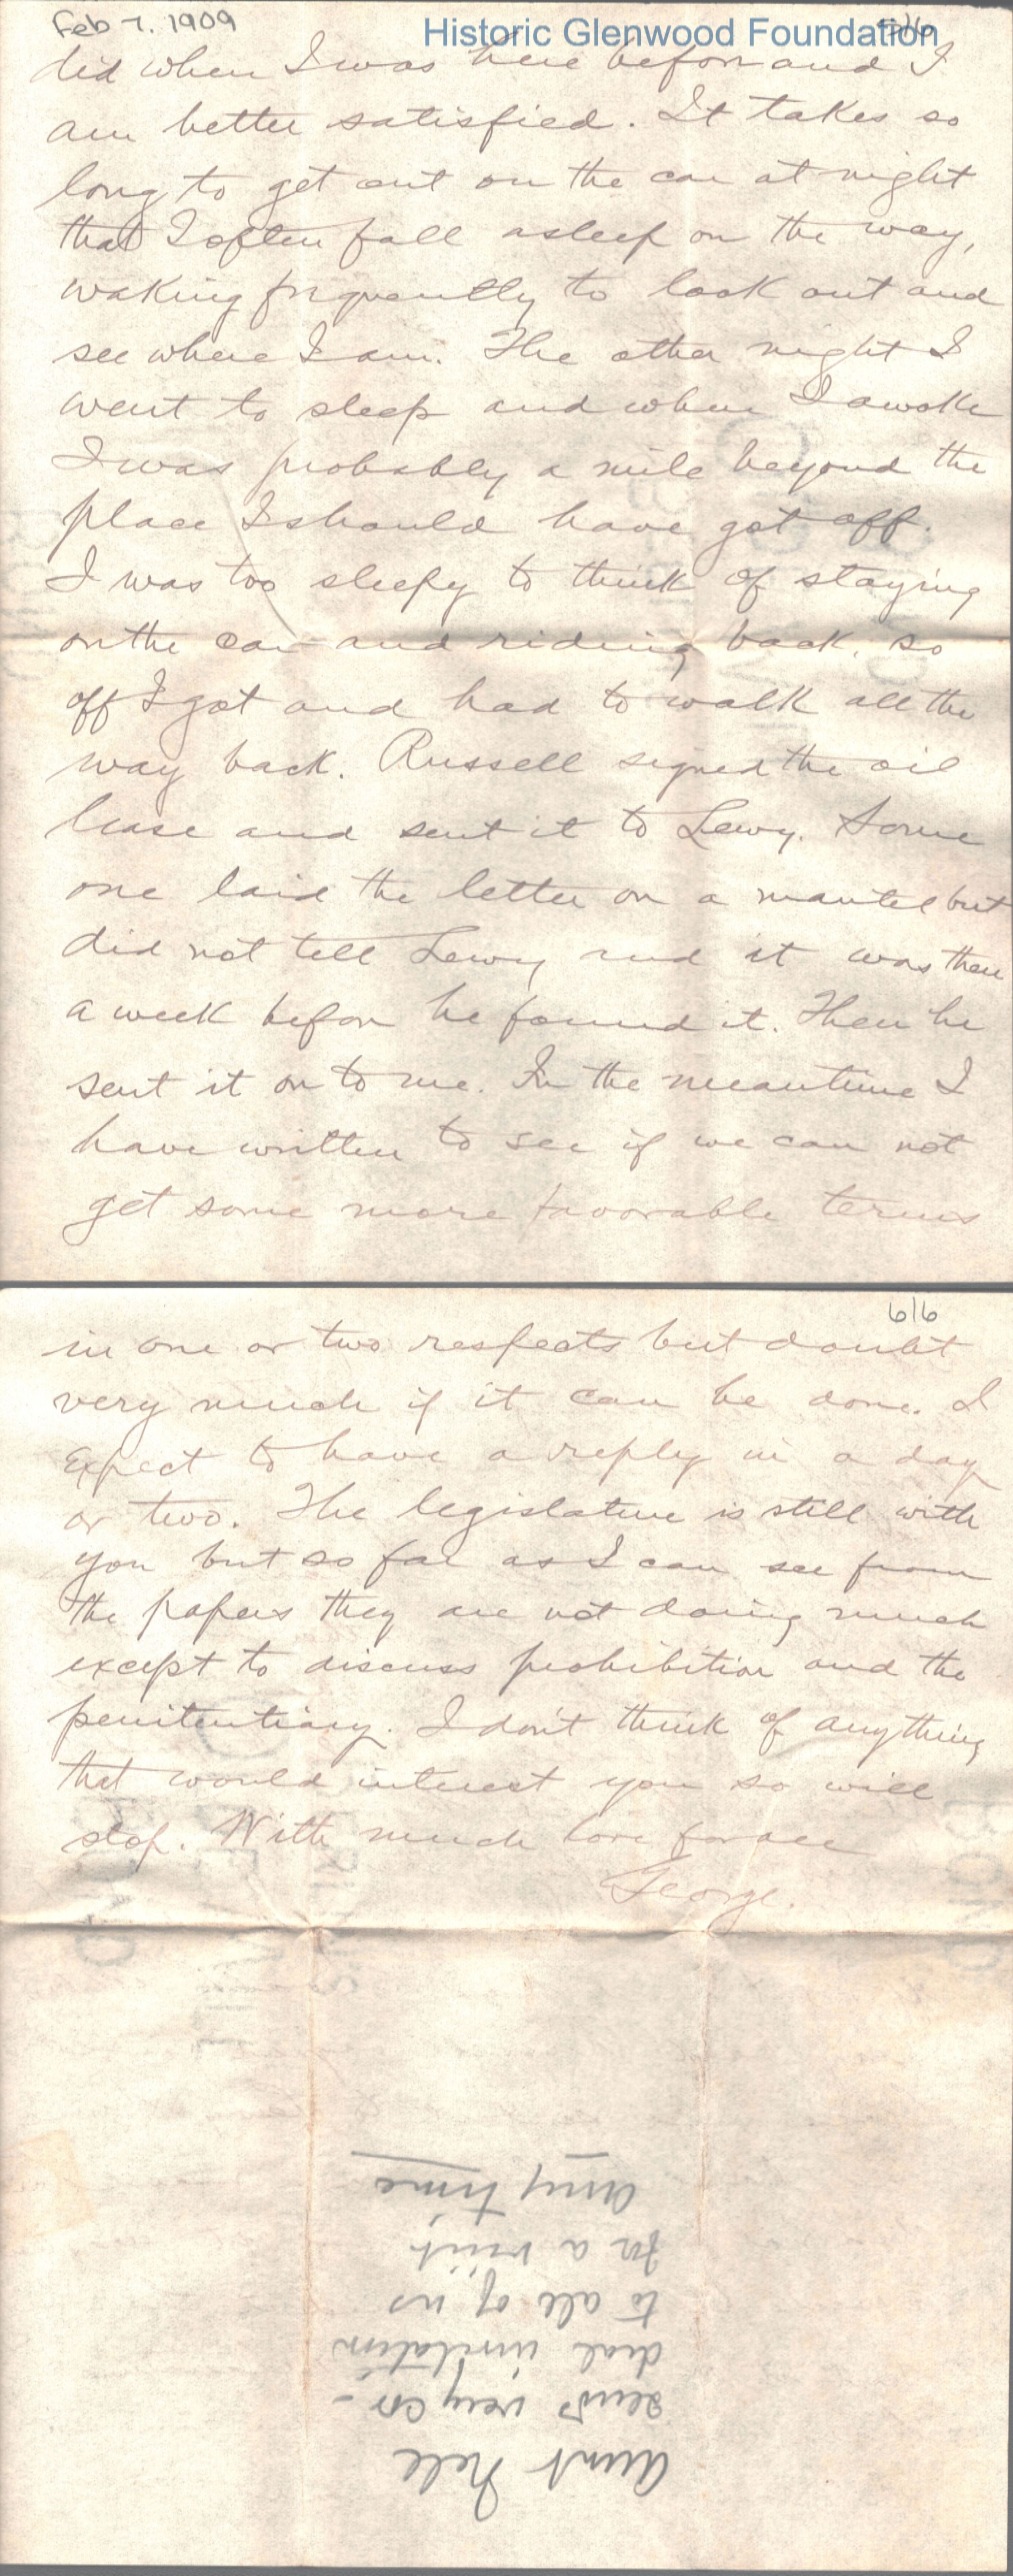 Feb 7. 1909
Historic Glenwood Foundation
5/6
did when I was here before and I
am better satisfied. It takes so
long to get out on the car at night
that I often fall asleep on the way,
waking frequently to look out and
see where I am. The other night I
went to sleep and when I awoke
I was probably a mile beyond the
place I should have got off.
I was too sleepy to think of staying
on the car and riding back, so
off I got and had to walk all the
way back. Russell signed the oil
lease and sent it to Lewy. Some
one laid the letter on a mantel but
did not tell Lewy and it was there
a week before he found it. Then he
sent it on to me. In the meantime I
have written to see if we can not
get some more favorable terms
6/6
in one or two respects but doubt
very much if it can be done. I
expect to have a reply in a day
or two. The legislature is still with
you but so far as I can see from
the papers they are not doing much
except to discuss prohibition and the
penitentiary. I don't think of anything
that would interest you so will
stop. With much love for all
George.
Aunt Nell
sends very cor-
dial invitation
to all of us
for a visit
any time